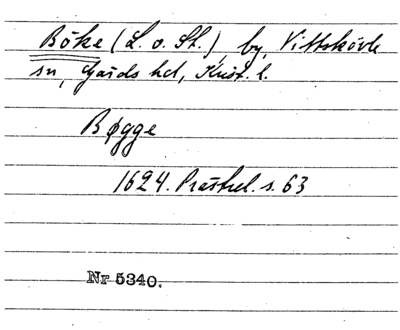 Böke (L. o. St.) by, Vittskövle
sn, Gärds hd, Krist. l.
Bøgge
1624. Prästrel. s. 63
Nr 5340.